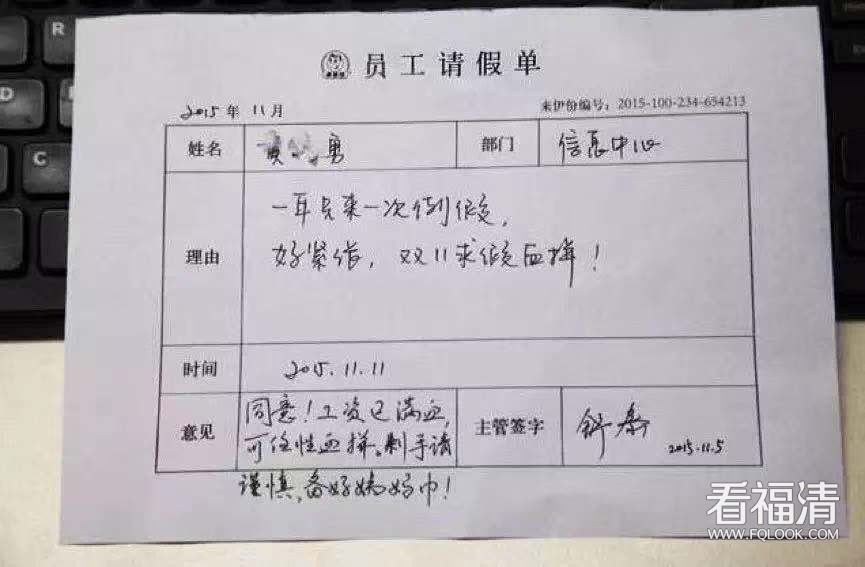 员工请假单
2015年 11月
来伊份编号：2015-100-234-654213
姓名 黄 勇 部门 信息中心
理由 一年只来一次的假，
好紧张，双11求假血拼！
时间 2015.11.11
意见 同意！工资已满血，
可任性血拼。剁手请
谨慎，备好姨妈巾！
主管签字 舒春
2015.11.5
看福清
WWW.FQLOOK.COM
R
D
C